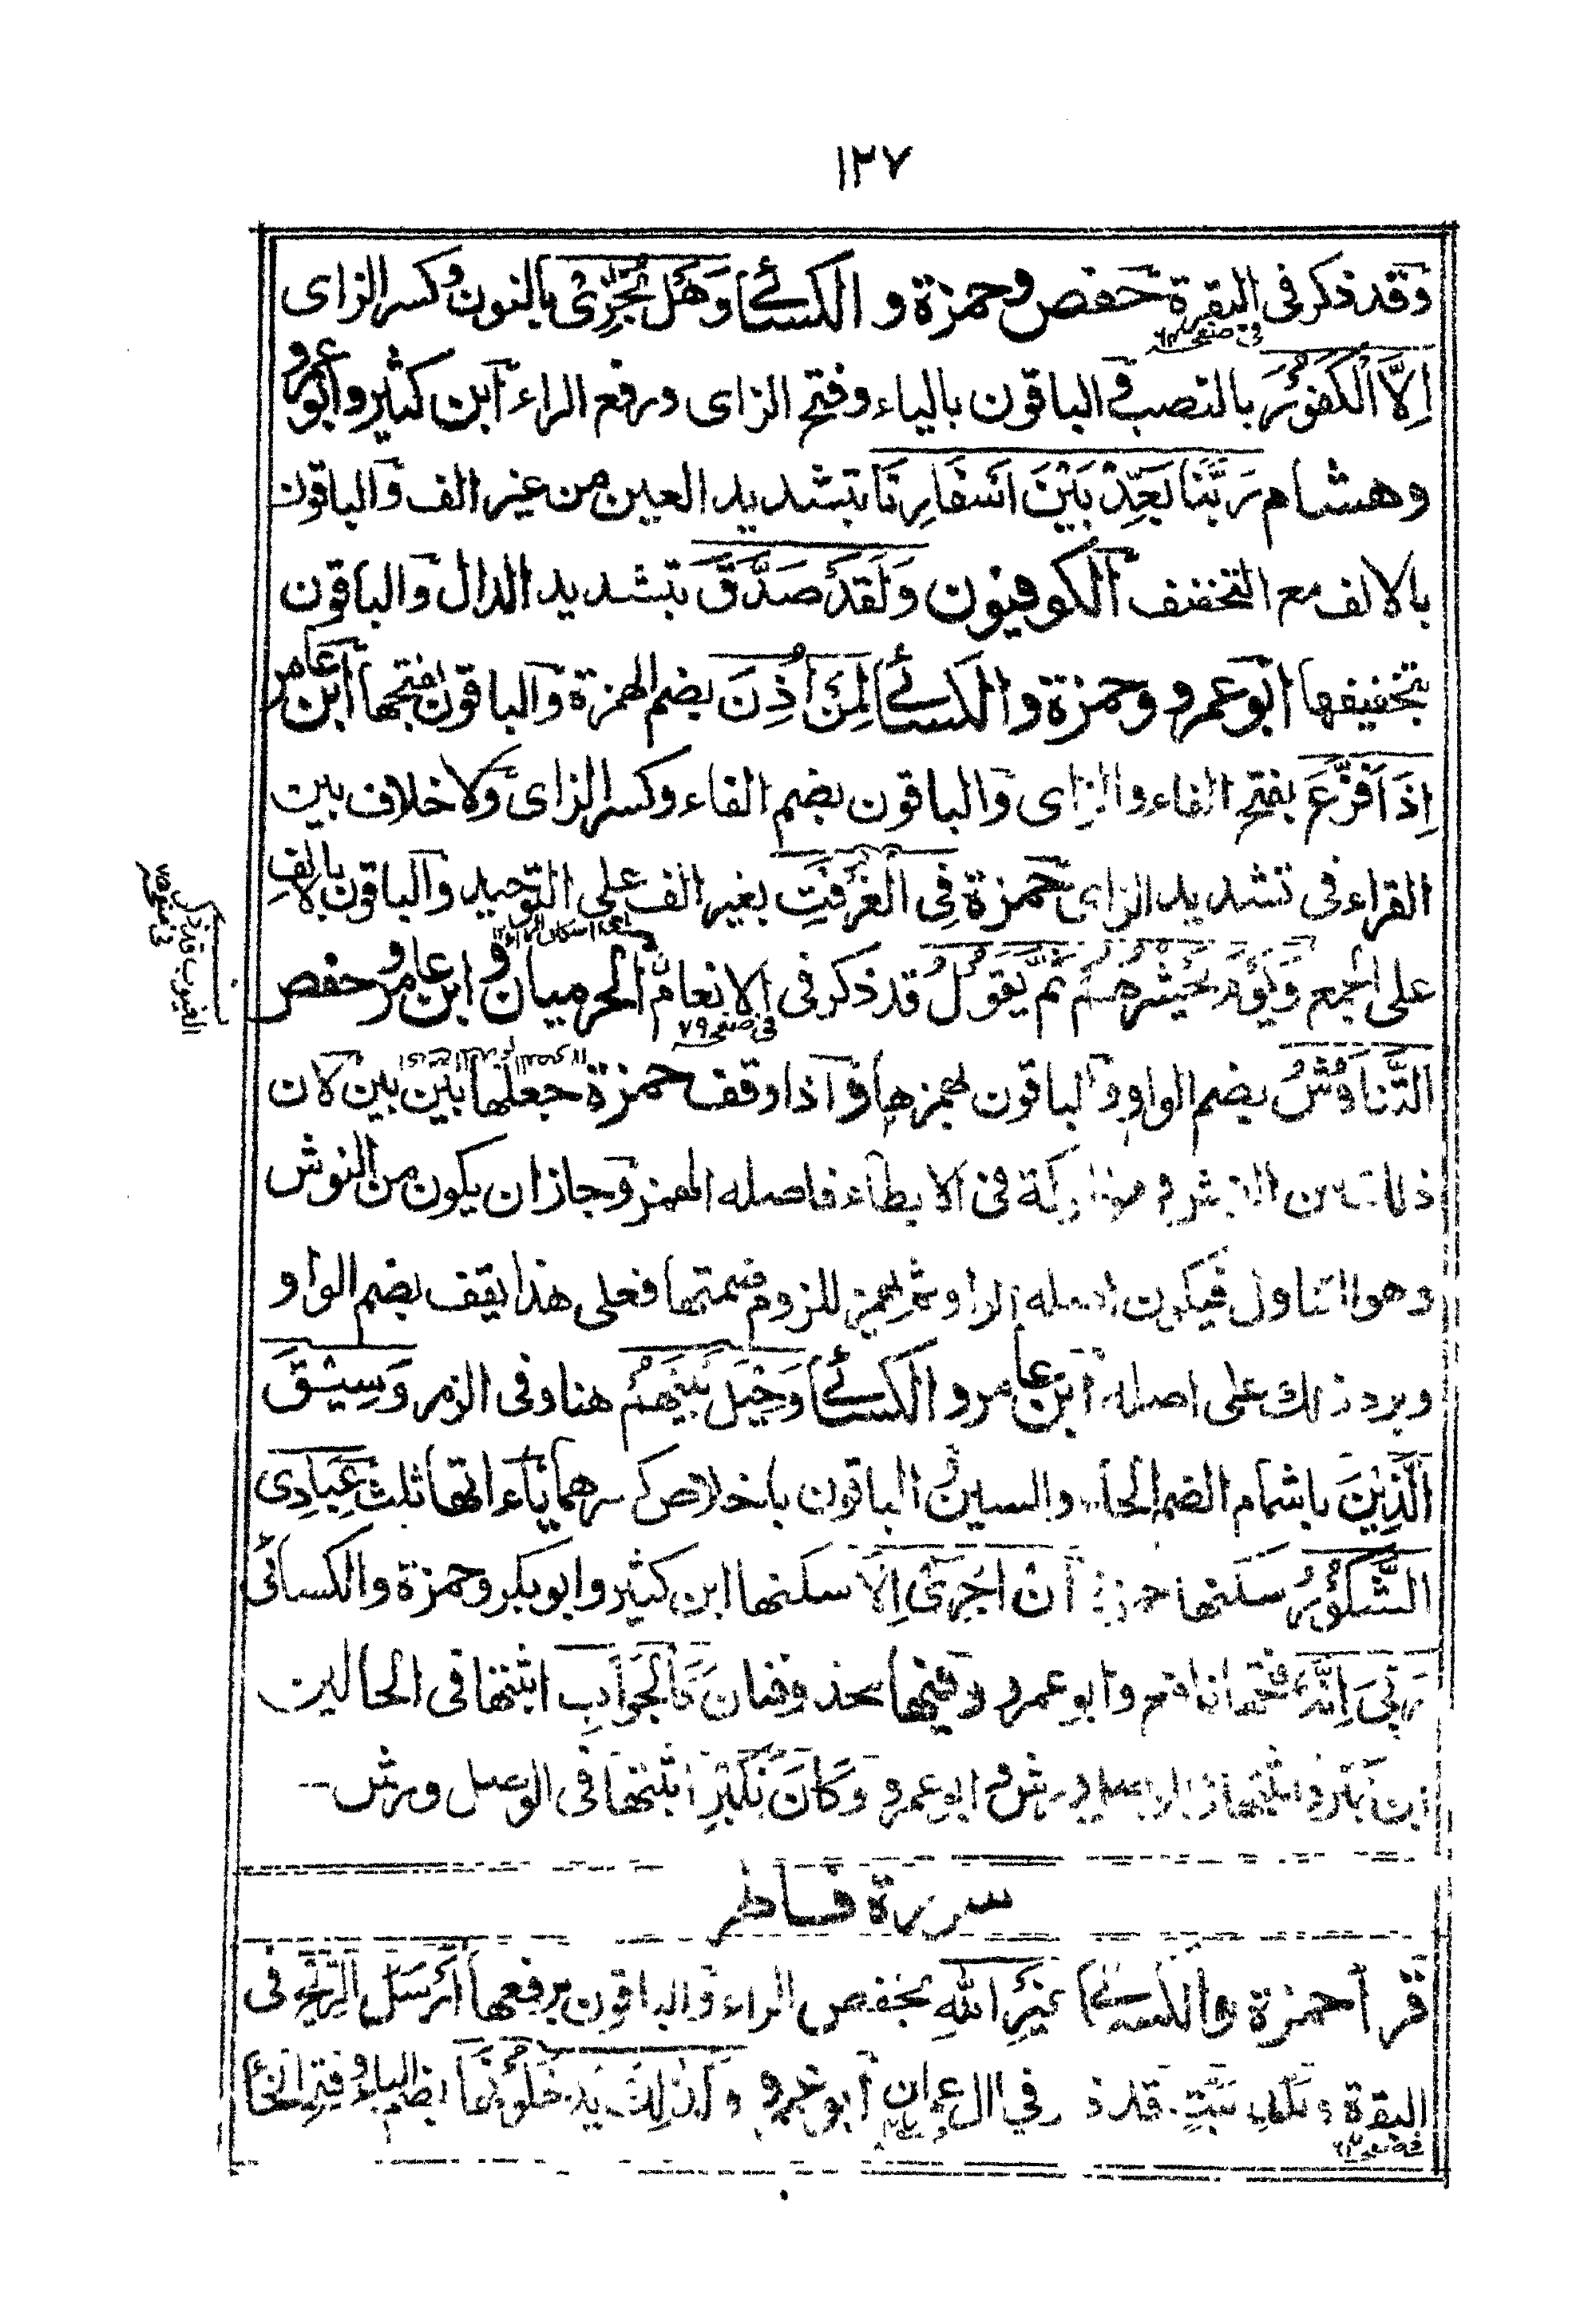 ١٢٧
وقد ذكر في البقرة حفص وحمزة والكسائي وَهَلْ نُجٰزِىْ بالنون وكسر الزاى
في صفحه
اِلَّا الْكَفُوْرَ بالنصب والباقون بالياء وفتح الزاى ورفع الراء ابن كثير وابو عمرو
وهشام رَبَّنَا بَعِّدْ بَيْنَ اَسْفَارِنَا بتشديد العين من غير الف والباقون
بالالف مع التخفيف الكوفيون وَلَقَدْ صَدَّقَ بتشديد الدال والباقون
بتخفيفها ابو عمرو وحمزة والكسائي لِمَنْ اُذِنَ بضم الهمزة والباقون بفتحها ابن عامر
اِذَا فَزَّعَ بفتح الفاء والزاى والباقون بضم الفاء وكسر الزاى ولا خلاف بين
القراء في تشديد الزاى حمزة فِى الْغُرْفَتِ بغير الف على التوحيد والباقون بالالف
على الجمع وَيَوْمَ يَحْشُرُهُمْ ثُمَّ يَقُوْلُ قد ذكر في الانعام الحرميان وابن عامر وحفص
في صفحه ٧٩
الغيوب قد ذكر
في صفحه ٧٥
التَّنَاوُشُ بضم الواو والباقون بهمزها واذا وقف حمزة جعلها بين بين لان
ذلك من الحركة في الابطاء فاصله الهمز وجاز ان يكون من النوش
وهو التناول فيكون اصله الواو ثم يهمز للزوم ضمتها فعلى هذا يقف بضم الواو
ويرد ذلك على اصله ابن عامر والكسائي وَحِيْلَ بَيْنَهُمْ هنا وفى الزمر وَسِيْقَ
الَّذِيْنَ باشمام الضم الحاء والسين والباقون باخلاص كسرهما ياءاتها ثلث عِبَادِى
الشَّكُوْرُ سكنها حمزة اِنْ اَجْرِىَ اِلَّا سكنها ابن كثير وابو بكر وحمزة والكسائى
رَبِّىَ اِنَّهُ فتحها نافع وابو عمرو وفيها محذوفتان كَالْجَوَابِ اثبتها في الحالين
ابن كثير واثبتها في الوصل ورش وابو عمرو وَكَانَ نَكِيْرِ اثبتها في الوصل ورش
سورة فاطر
قرأ حمزة والكسائي غَيْرِ اللهِ بخفض الراء والباقون برفعها اَرْسَلَ الرِّيٰحَ في
البقرة قد ذكر في ال عمران ابو عمرو يُدْخَلُوْنَهَا بضم الياء وفتح الخاء